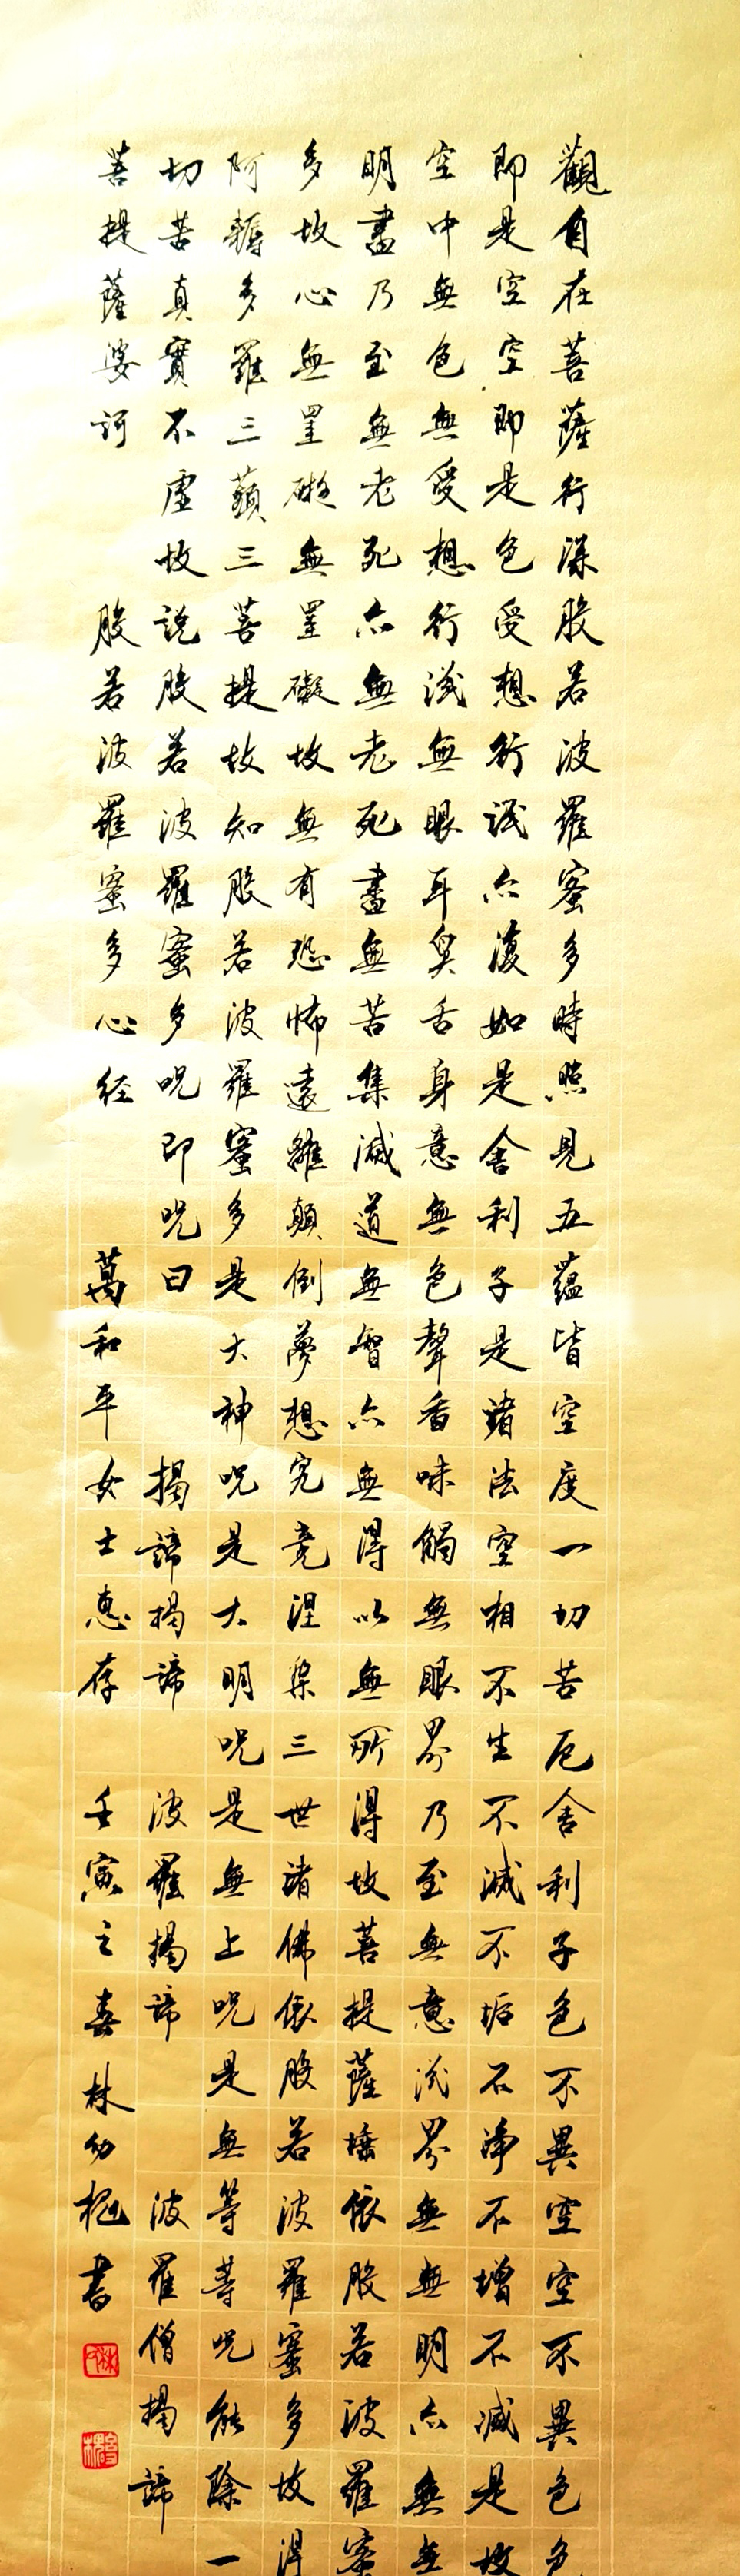 觀自在菩薩行深般若波羅蜜多時照見五蘊皆空度一切苦厄舍利子色不異空空不異色色
即是空空即是色受想行識亦復如是舍利子是諸法空相不生不滅不垢不淨不增不減是故
空中無色無受想行識無眼耳鼻舌身意無色聲香味觸無眼界乃至無意識界無無明亦無無
明盡乃至無老死亦無老死盡無苦集滅道無智亦無得以無所得故菩提薩埵依般若波羅蜜
多故心無罣礙無罣礙故無有恐怖遠離顛倒夢想究竟涅槃三世諸佛依般若波羅蜜多故得
阿耨多羅三藐三菩提故知般若波羅蜜多是大神呪是大明呪是無上呪是無等等呪能除一
切苦真實不虛故說般若波羅蜜多呪即呪曰 揭諦揭諦 波羅揭諦 波羅僧揭諦
菩提薩婆訶 般若波羅蜜多心经 萬和平女士惠存 壬寅之春林幼槐書